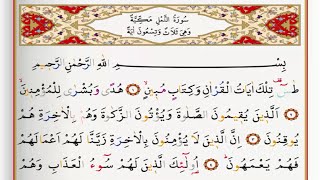 سُورَةُ النَّمْلِ مَكِّيَّةٌ
وَهِيَ ثَلَاثٌ وَتِسْعُونَ اٰيَةً
بِسْمِ اللهِ الرَّحْمٰنِ الرَّحِيمِ
طٰسٓ تِلْكَ اٰيَاتُ الْقُرْاٰنِ وَكِتَابٍ مُبٖينٍ ﴿١﴾ هُدًى وَبُشْرٰى لِلْمُؤْمِنٖينَ ﴿٢﴾
اَلَّذٖينَ يُقٖيمُونَ الصَّلٰوةَ وَيُؤْتُونَ الزَّكٰوةَ وَهُمْ بِالْاٰخِرَةِ هُمْ
يُوقِنُونَ ﴿٣﴾ اِنَّ الَّذٖينَ لَا يُؤْمِنُونَ بِالْاٰخِرَةِ زَيَّنَّا لَهُمْ اَعْمَالَهُمْ
فَهُمْ يَعْمَهُونَ ﴿٤﴾ اُو۬لٰٓئِكَ الَّذٖينَ لَهُمْ سُٓوءُ الْعَذَابِ وَهُمْ